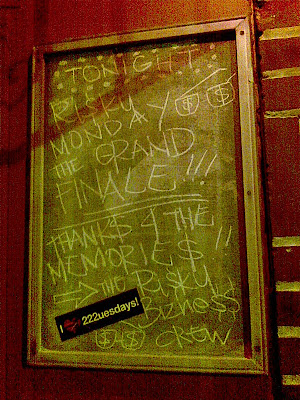 TONIGHT
RISKY
MONDAY
THE GRAND
FINALE!!!
THANKS 4 THE
MEMORIE$!!
THE RISKY
BIZNE$$
CREW
I ♥ 222uesdays!